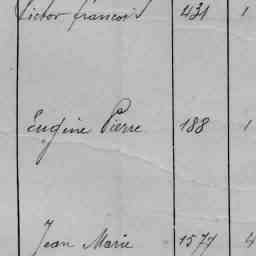 Victor François 431 1
Eugène Pierre 188 1
Jean Marie 1577 4